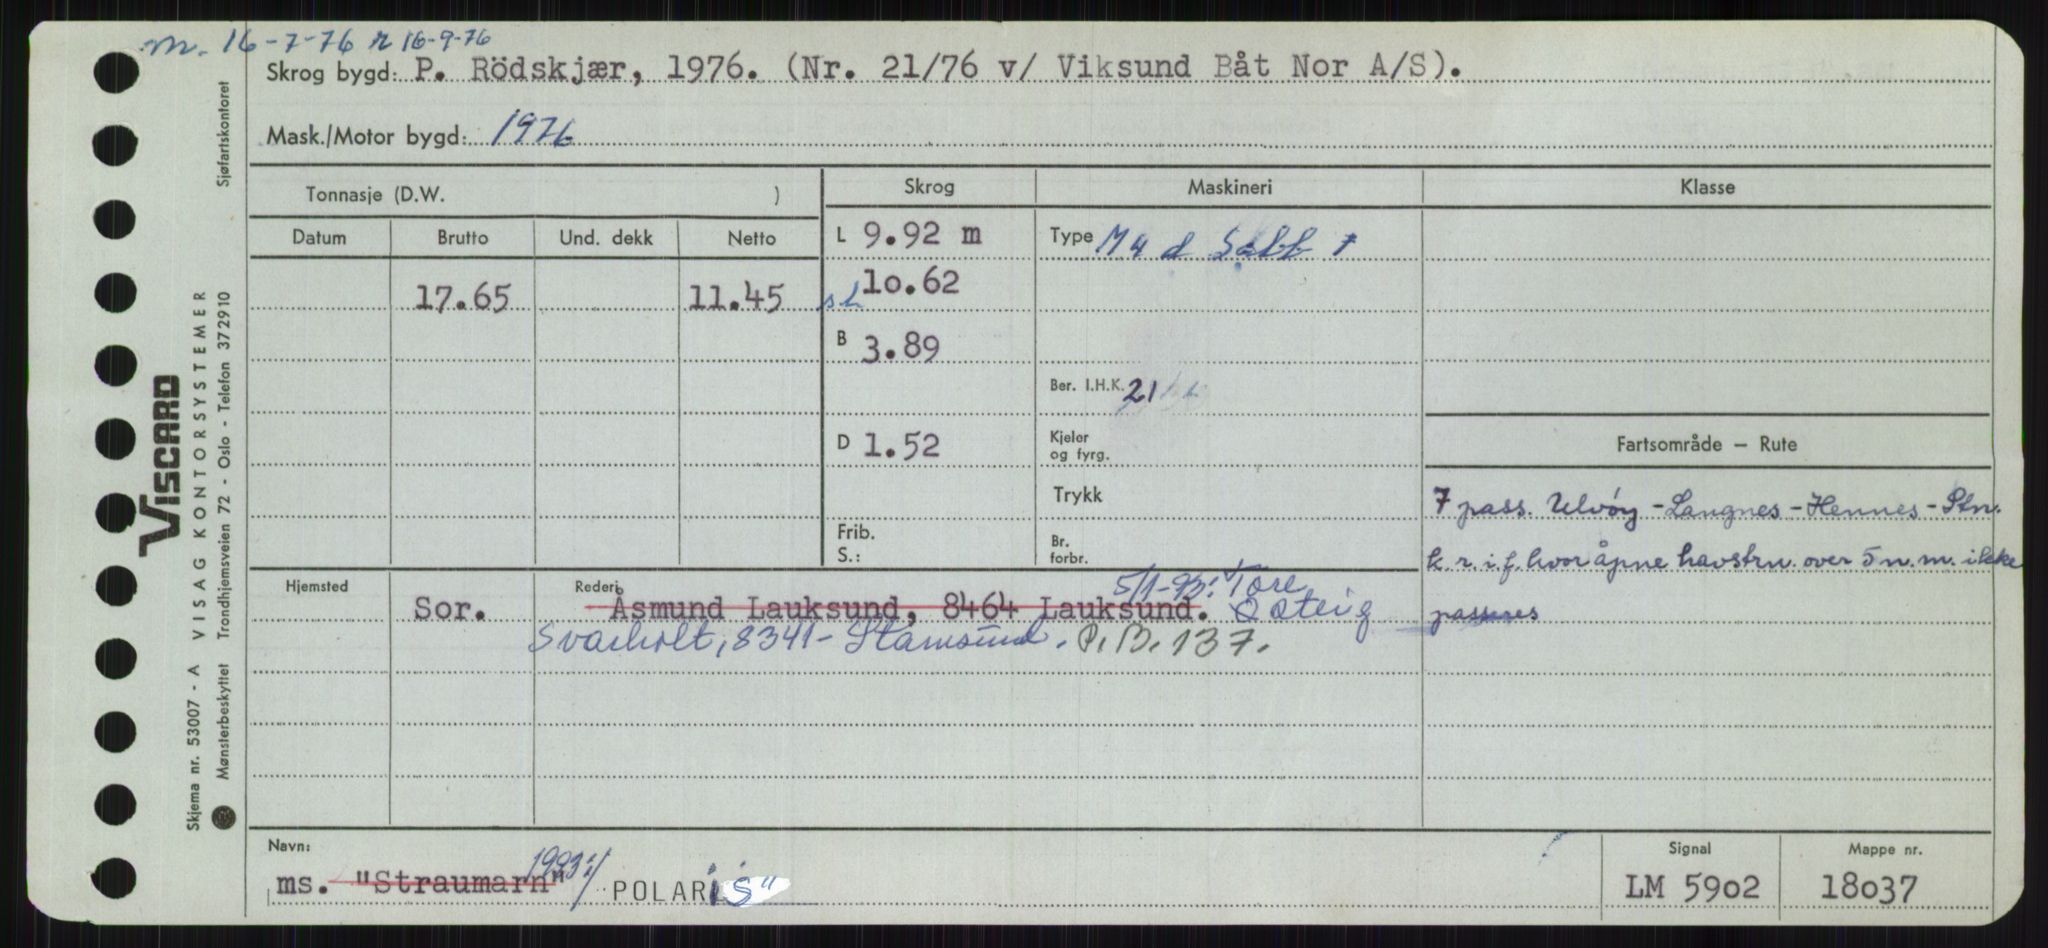 m. 16-7-76 r 16-9-76
Skrog bygd: P. Rödskjær, 1976. (Nr. 21/76 v/ Viksund Båt Nor A/S).
Mask./Motor bygd: 1976
Tonnasje (D.W. )
Skrog
Maskineri
Klasse
Datum
Brutto
Und. dekk
Netto
L 9.92 m
Type M 4 d Sabb 1
17.65
11.45
sl 10.62
B 3.89
Ber. I.H.K. 21
D 1.52
Kjeler
og fyrg.
Fartsområde — Rute
Trykk
7 pass. Ulvöy - Langnes - Hennes - Stn.
Frib.
S.:
Br.
forbr.
k. r. i. f. hvor åpne havstrn. over 5 n. m. ikke
passeres
Hjemsted
Rederi
5/1-93: Tore
Sor.
Åsmund Lauksund, 8464 Lauksund.
Svarholt, 8341 - Stamsund. P.B. 137.
Navn:
ms. "Straumarn"
1993:
POLARIS"
Signal
LM 5902
Mappe nr.
18037
Sjøfartskontoret
VISCARD
VISAG KONTORSYSTEMER
Trondhjemsveien 72 - Oslo - Telefon 372910
Skjema nr. 53007 - A
Mønsterbeskyttet